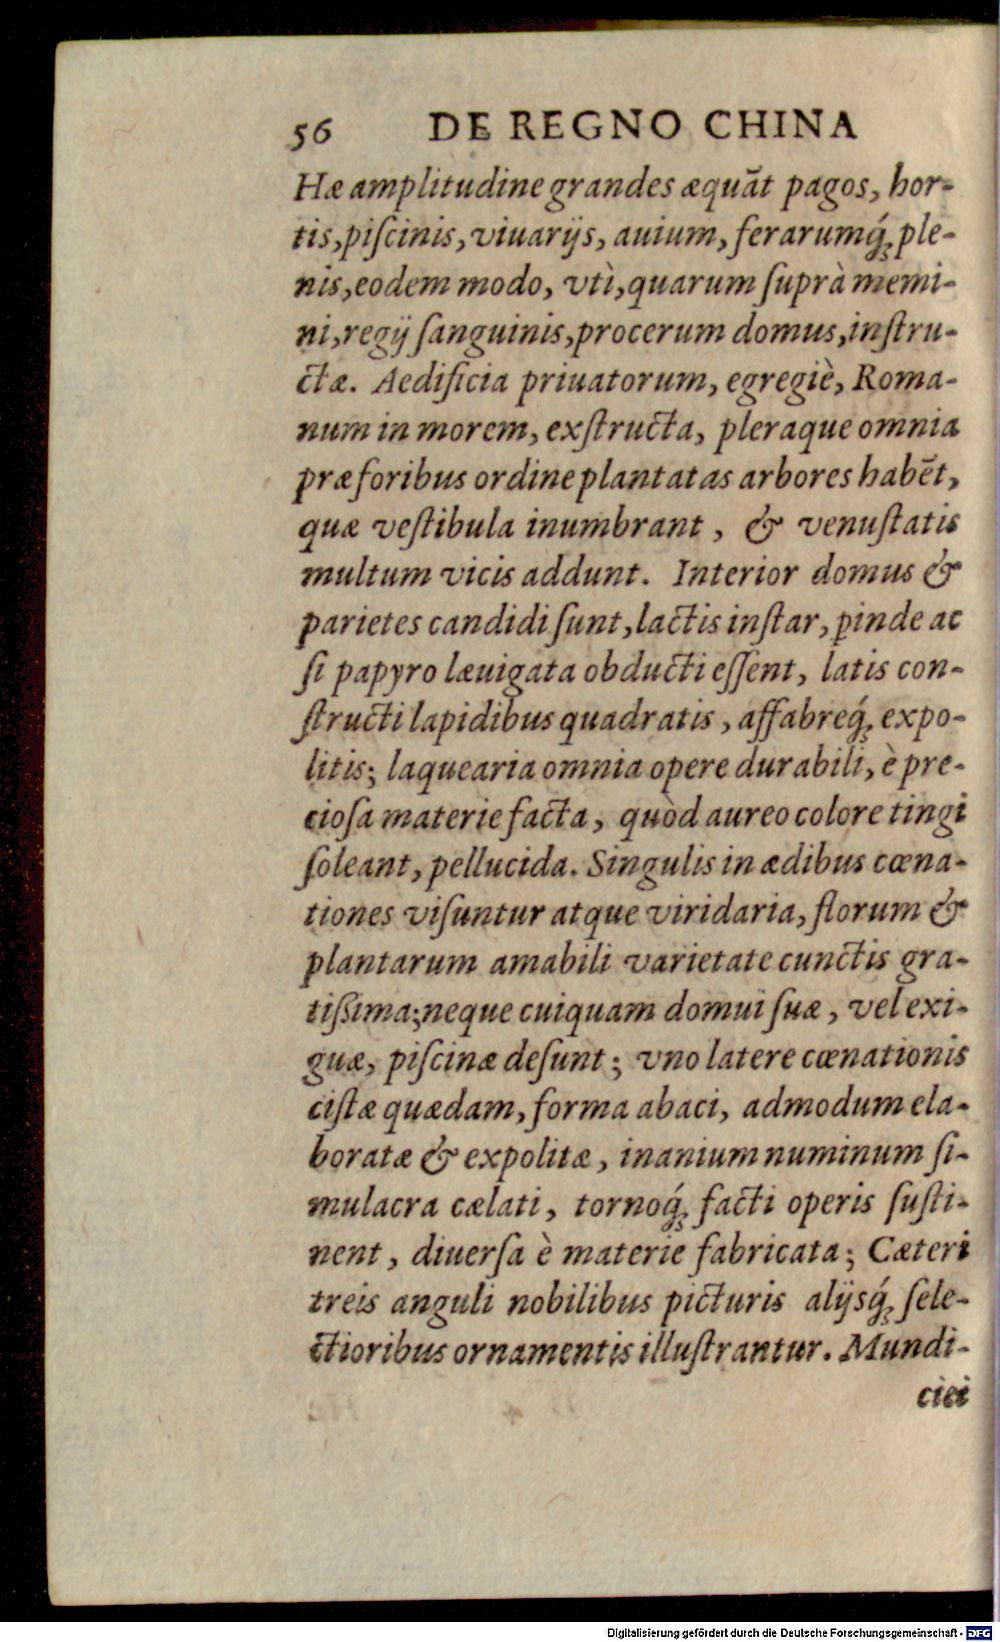 56 DE REGNO CHINA
Hæ amplitudine grandes æquãt pagos, hor-
tis, piſcinis, viuarijs, auium, ferarumq́ꝫ ple-
nis, eodem modo, vtì, quarum ſuprà memi-
ni, regij ſanguinis, procerum domus, inſtru-
ctæ. Aedificia priuatorum, egregiè, Roma-
num in morem, exſtructa, pleraque omnia
præ foribus ordine plantatas arbores habẽt,
quæ veſtibula inumbrant, & venuſtatis
multum vicis addunt. Interior domus &
parietes candidi ſunt, lactis inſtar, ꝑinde ac
ſi papyro læuigata obducti eſſent, latis con-
ſtructi lapidibus quadratis, affabreq́ꝫ expo-
litis; laquearia omnia opere durabili, è pre-
cioſa materie facta, quòd aureo colore tingi
ſoleant, pellucida. Singulis in ædibus cœna-
tiones viſuntur atque viridaria, florum &
plantarum amabili varietate cunctis gra-
tiſſima; neque cuiquam domui ſuæ, vel exi-
guæ, piſcinæ deſunt; vno latere cœnationis
ciſtæ quædam, forma abaci, admodum ela-
boratæ & expolitæ, inanium numinum ſi-
mulacra cælati, tornoq́ꝫ facti operis ſuſti-
nent, diuerſa è materie fabricata; Cæteri
treis anguli nobilibus picturis alijsq́ꝫ ſele-
ctioribus ornamentis illuſtrantur. Mundi-
ciei
Digitalisierung gefördert durch die Deutsche Forschungsgemeinschaft - DFG